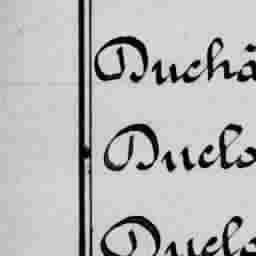 Duchâ
Duclo
Duclo